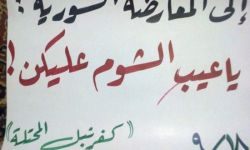 إلى المعارضة السورية :
ياعيب الشوم عليكن !
(كفرنبل المحتلة)
٩/١٨